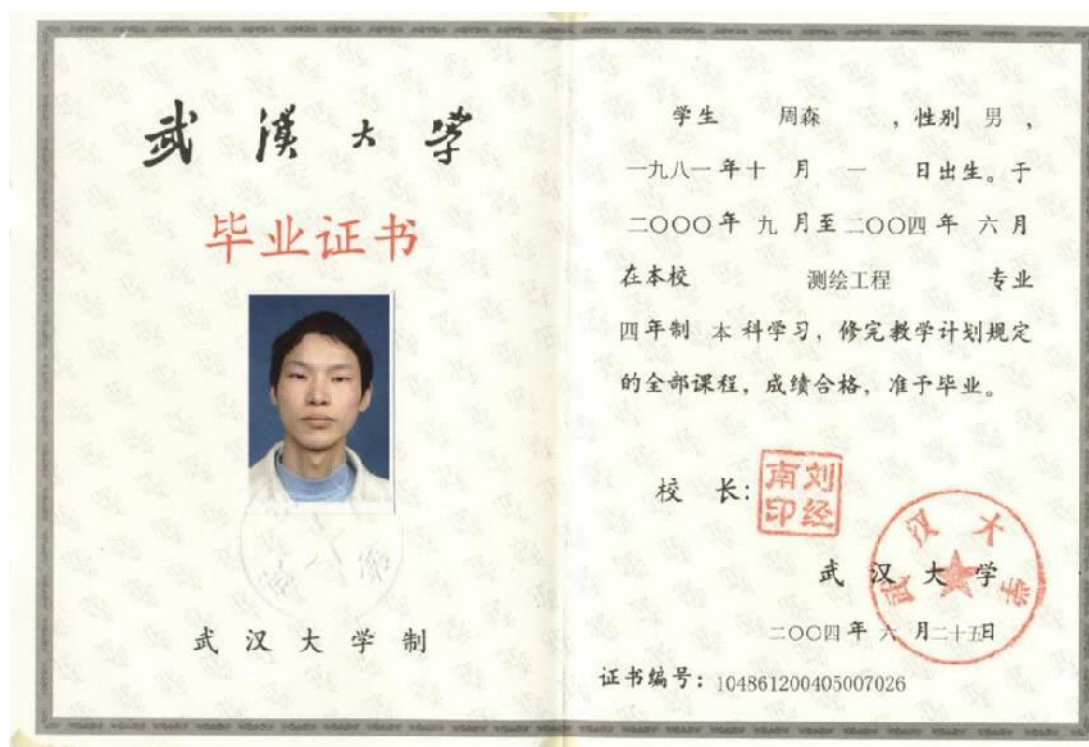 武漢大学
毕业证书
武汉大学制
学生 周森 ,性别 男 ,
一九八一年十 月 一 日出生。于
二〇〇〇年 九 月至 二〇〇四年 六 月
在本校 测绘工程 专业
四年制 本 科学习，修完教学计划规定
的全部课程，成绩合格，准予毕业。
校 长：
刘经南印
武汉大学
武汉大学
二〇〇四年 六 月二十五日
证书编号：104861200405007026